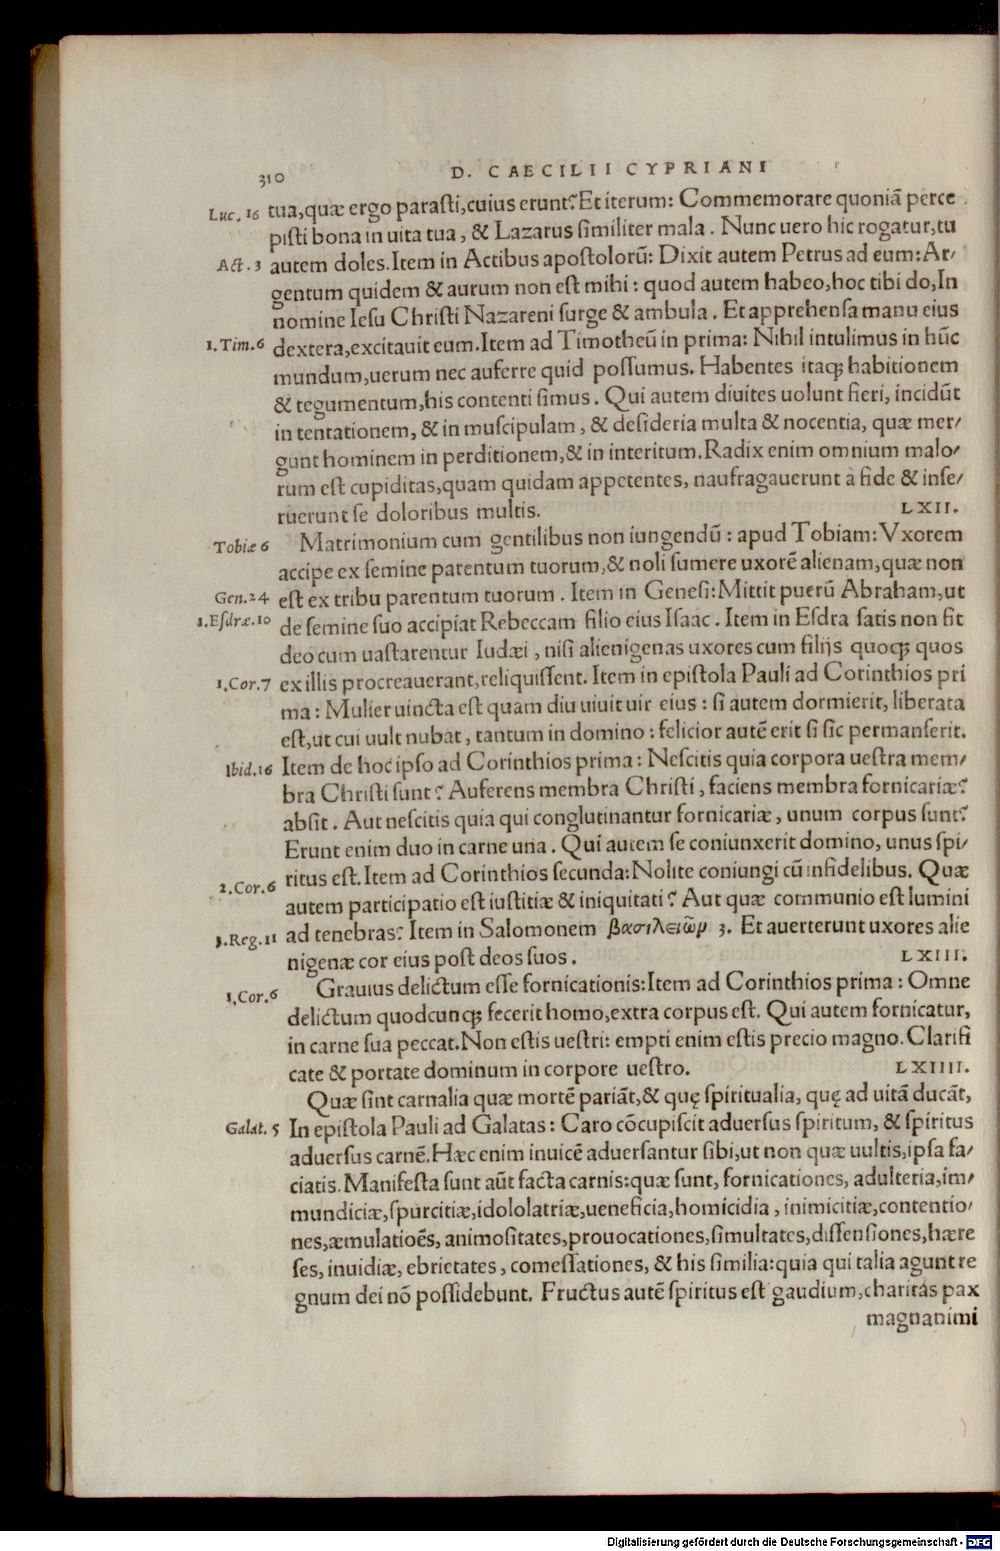 310 D. CAECILII CYPRIANI
Luc. 16 tua,quæ ergo parasti,cuius erunt? Et iterum: Commemorare quoniā perce
pisti bona in uita tua, & Lazarus similiter mala. Nunc uero hic rogatur,tu
Act. 3 autem doles. Item in Actibus apostolorū: Dixit autem Petrus ad eum: Ar/
gentum quidem & aurum non est mihi: quod autem habeo,hoc tibi do, In
nomine Iesu Christi Nazareni surge & ambula. Et apprehensa manu eius
1. Tim. 6 dextera,excitauit eum. Item ad Timotheū in prima: Nihil intulimus in hūc
mundum,uerum nec auferre quid possumus. Habentes itaq; habitionem
& tegumentum,his contenti simus. Qui autem diuites uolunt fieri, incidūt
in tentationem, & in muscipulam, & desideria multa & nocentia, quæ mer/
gunt hominem in perditionem,& in interitum. Radix enim omnium malo/
rum est cupiditas,quam quidam appetentes, naufragauerunt à fide & inse/
ruerunt se doloribus multis. LXII.
Tobiæ 6 Matrimonium cum gentilibus non iungendū: apud Tobiam: Vxorem
accipe ex semine parentum tuorum,& noli sumere uxorē alienam,quæ non
Gen. 24 est ex tribu parentum tuorum. Item in Genesi: Mittit puerū Abraham,ut
1. Esdræ. 10 de semine suo accipiat Rebeccam filio eius Isaac. Item in Esdra satis non fit
deo cum uastarentur Iudæi, nisi alienigenas uxores cum filijs quoq; quos
1. Cor. 7 ex illis procreauerant,reliquissent. Item in epistola Pauli ad Corinthios pri
ma: Mulier uincta est quam diu uiuit uir eius: si autem dormierit, liberata
est,ut cui uult nubat, tantum in domino: felicior autē erit si sic permanserit.
Ibid. 16 Item de hoc ipso ad Corinthios prima: Nescitis quia corpora uestra mem/
bra Christi sunt? Auferens membra Christi, faciens membra fornicariæ?
absit. Aut nescitis quia qui conglutinantur fornicariæ, unum corpus sunt?
Erunt enim duo in carne una. Qui autem se coniunxerit domino, unus spi/
2. Cor. 6 ritus est. Item ad Corinthios secunda: Nolite coniungi cū infidelibus. Quæ
autem participatio est iustitiæ & iniquitati? Aut quæ communio est lumini
3. Reg. 11 ad tenebras? Item in Salomonem βασιλειῶν 3. Et auerterunt uxores alie
nigenæ cor eius post deos suos. LXIII.
1. Cor. 6 Grauius delictum esse fornicationis: Item ad Corinthios prima: Omne
delictum quodcunq; fecerit homo,extra corpus est. Qui autem fornicatur,
in carne sua peccat. Non estis uestri: empti enim estis precio magno. Clarifi
cate & portate dominum in corpore uestro. LXIIII.
Quæ sint carnalia quæ mortē pariāt,& quę spiritualia, quę ad uitā ducāt,
Galat. 5 In epistola Pauli ad Galatas: Caro cōcupiscit aduersus spiritum, & spiritus
aduersus carnē. Hæc enim inuicē aduersantur sibi,ut non quæ uultis,ipsa fa/
ciatis. Manifesta sunt aūt facta carnis: quæ sunt, fornicationes, adulteria,im/
mundiciæ,spurcitiæ,idololatriæ,ueneficia,homicidia, inimicitiæ,contentio/
nes,æmulatioēs, animositates,prouocationes,simultates,dissensiones,hære
ses, inuidiæ, ebrietates, comessationes, & his similia: quia qui talia agunt re
gnum dei nō possidebunt. Fructus autē spiritus est gaudium,charitas pax
magnanimi
Digitalisierung gefördert durch die Deutsche Forschungsgemeinschaft - DFG